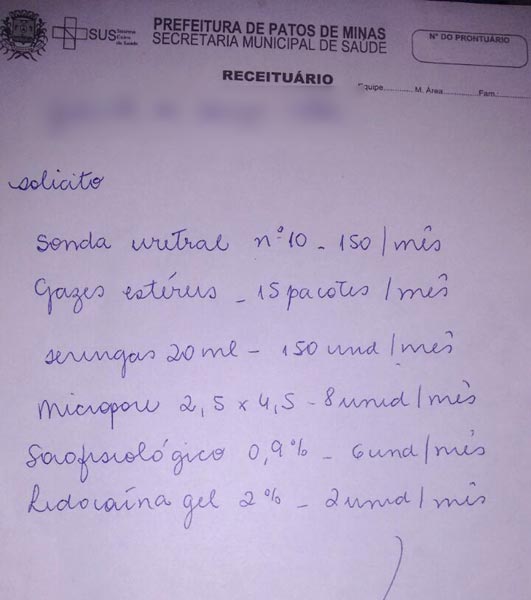 SUS Sistema Único de Saúde
PREFEITURA DE PATOS DE MINAS
SECRETARIA MUNICIPAL DE SAÚDE
Nº DO PRONTUÁRIO
RECEITUÁRIO
Equipe............ M. Área............... Fam.:............
solicito
Sonda uretral nº 10 - 150 / mês
Gazes estéreis - 15 pacotes / mês
seringas 20 ml - 150 und / mês
Micropore 2,5 x 4,5 - 8 unid / mês
Sorofisiológico 0,9% - 6 und / mês
Lidocaína gel 2% - 2 unid / mês